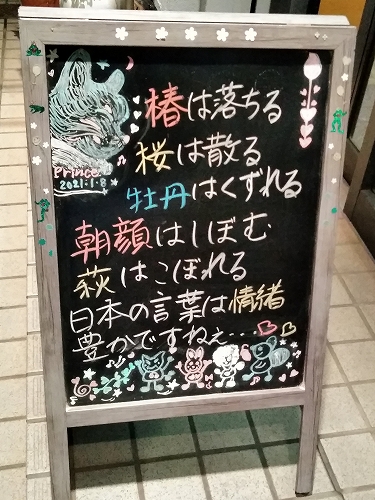 Prince
2021.1.8
椿は落ちる
桜は散る
牡丹はくずれる
朝顔はしぼむ
萩はこぼれる
日本の言葉は情緒
豊かですねぇ…